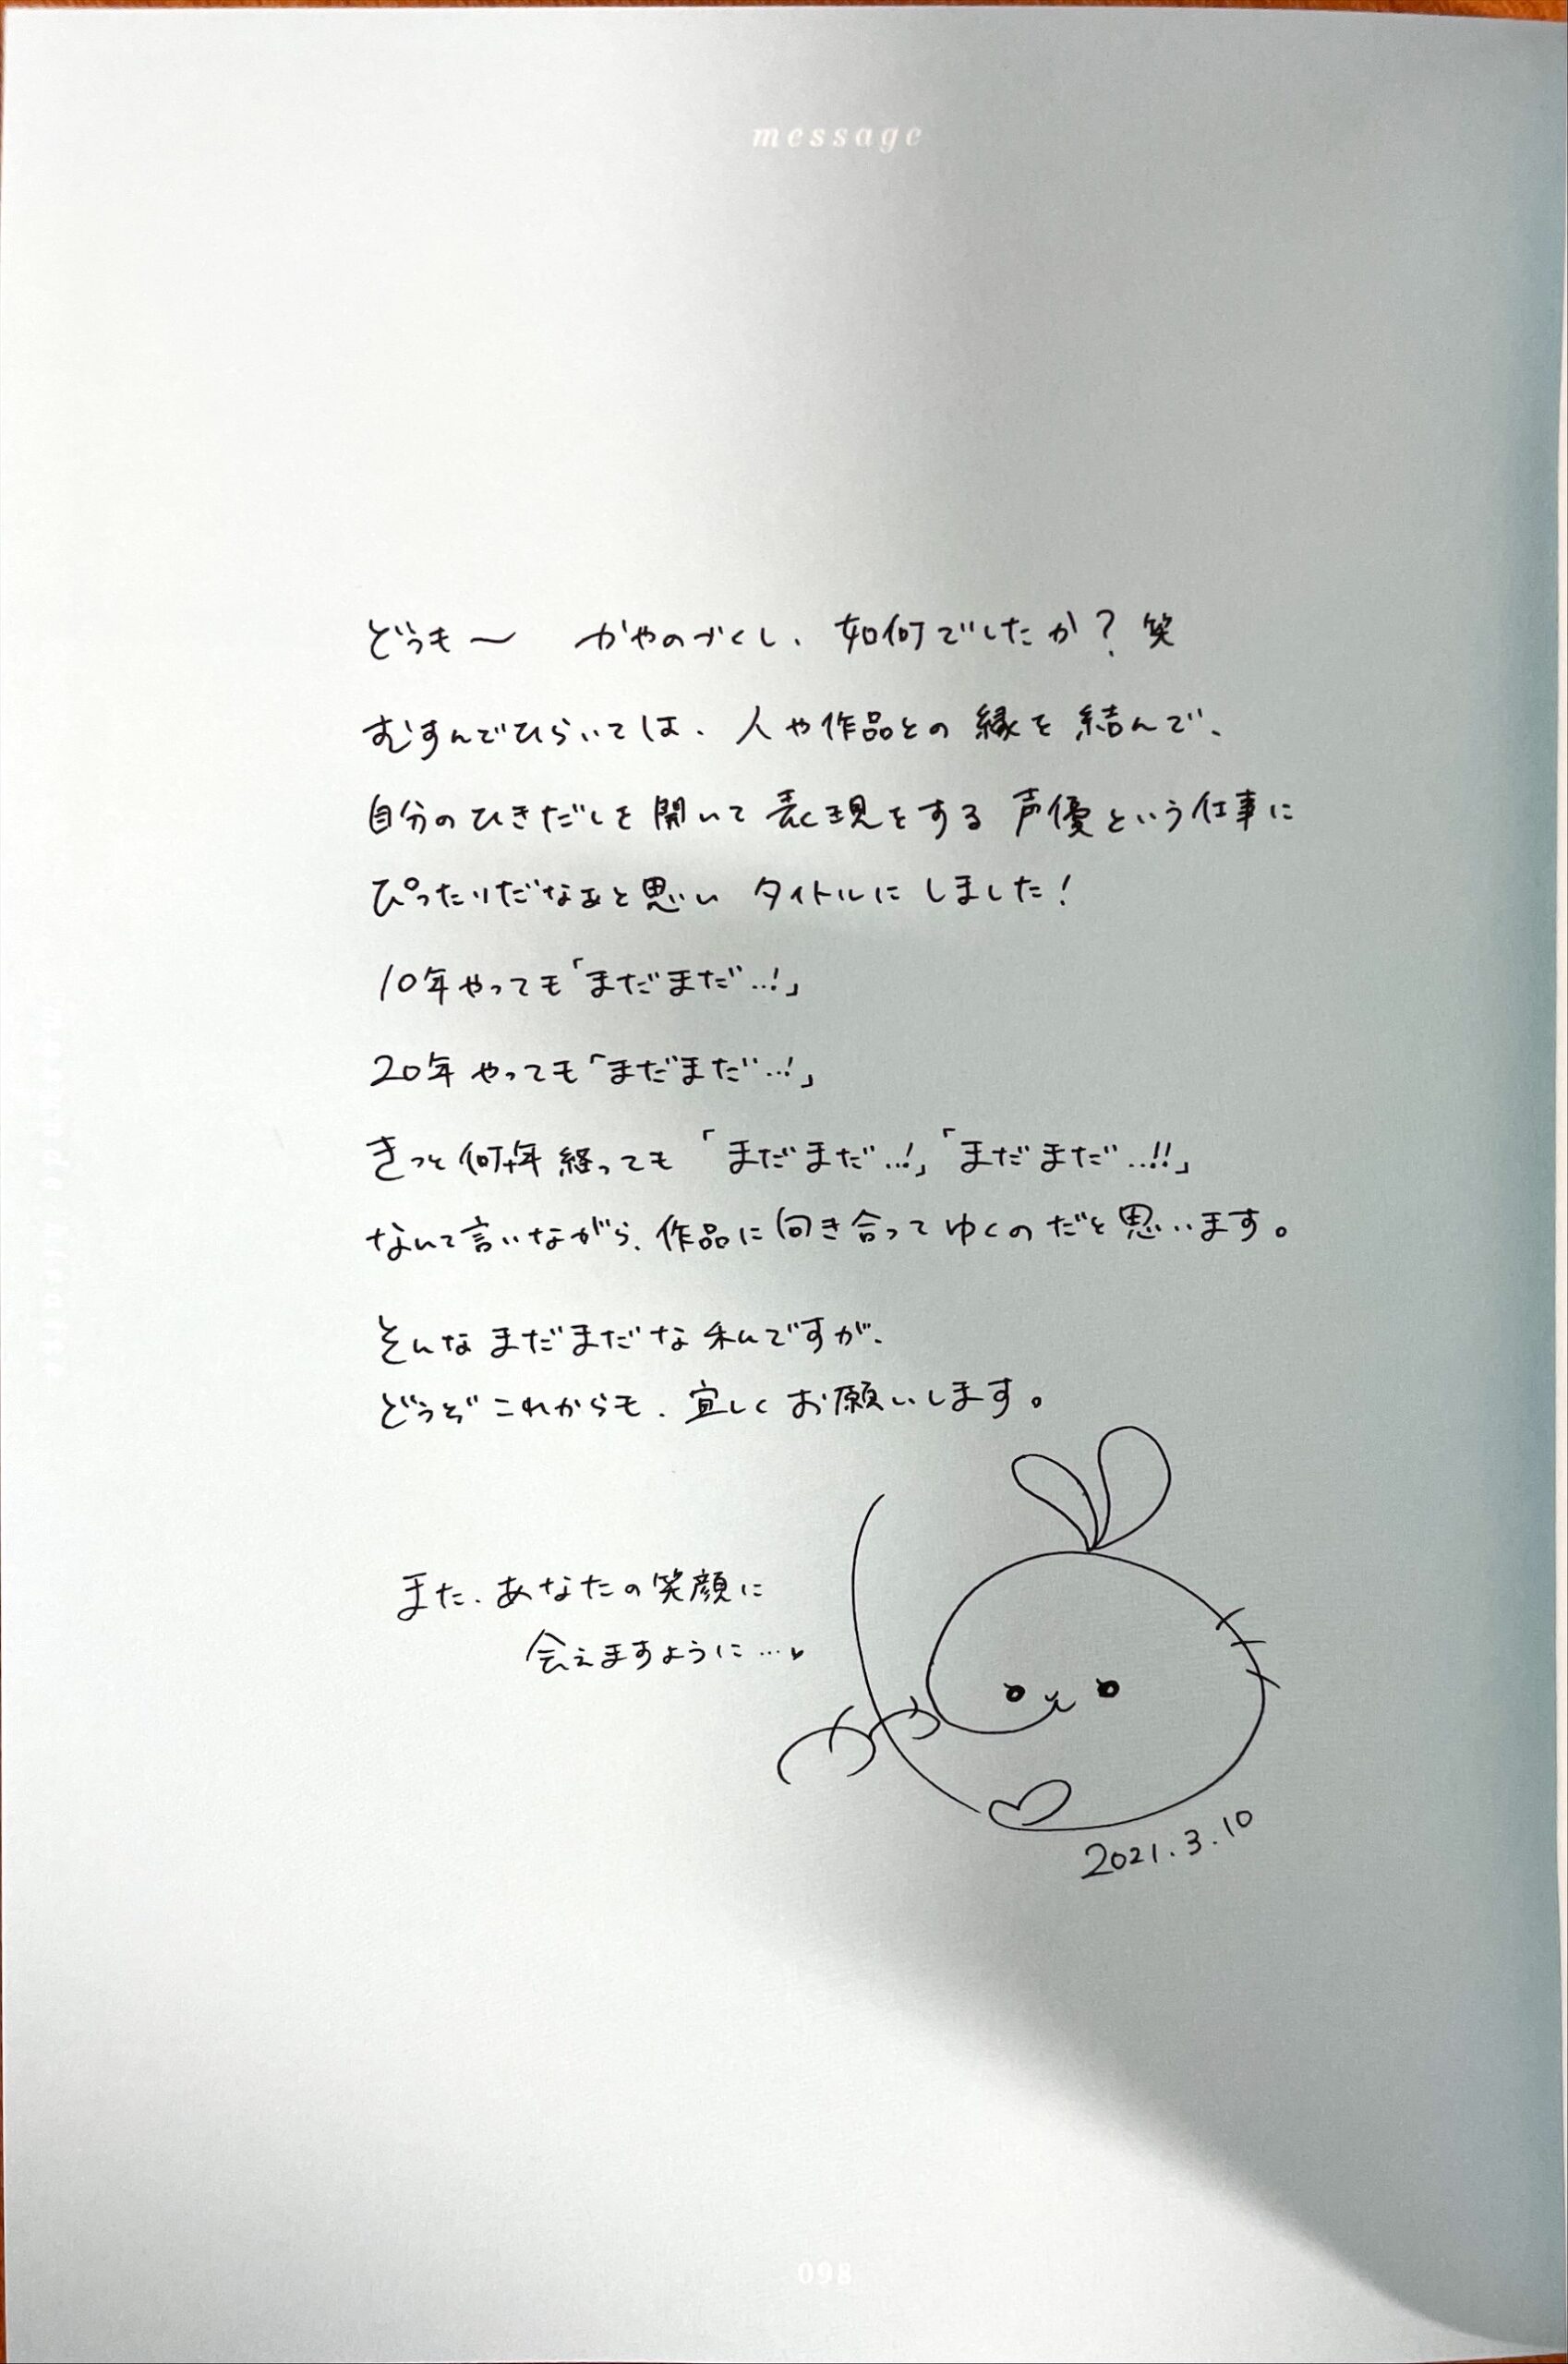 message
どうも〜 かやのづくし、如何でしたか？笑
むすんでひらいては、人や作品との縁を結んで、
自分のひきだしを開いて表現をする声優という仕事に
ぴったりだなぁと思い タイトルにしました！
10年やっても「まだまだ…！」
20年やっても「まだまだ…！」
きっと何年経っても「まだまだ…！」「まだまだ…!!」
なんて言いながら、作品に向き合ってゆくのだと思います。
そんなまだまだな私ですが、
どうぞこれからも、宜しくお願いします。
また、あなたの笑顔に
会えますように…♥
2021.3.10
098